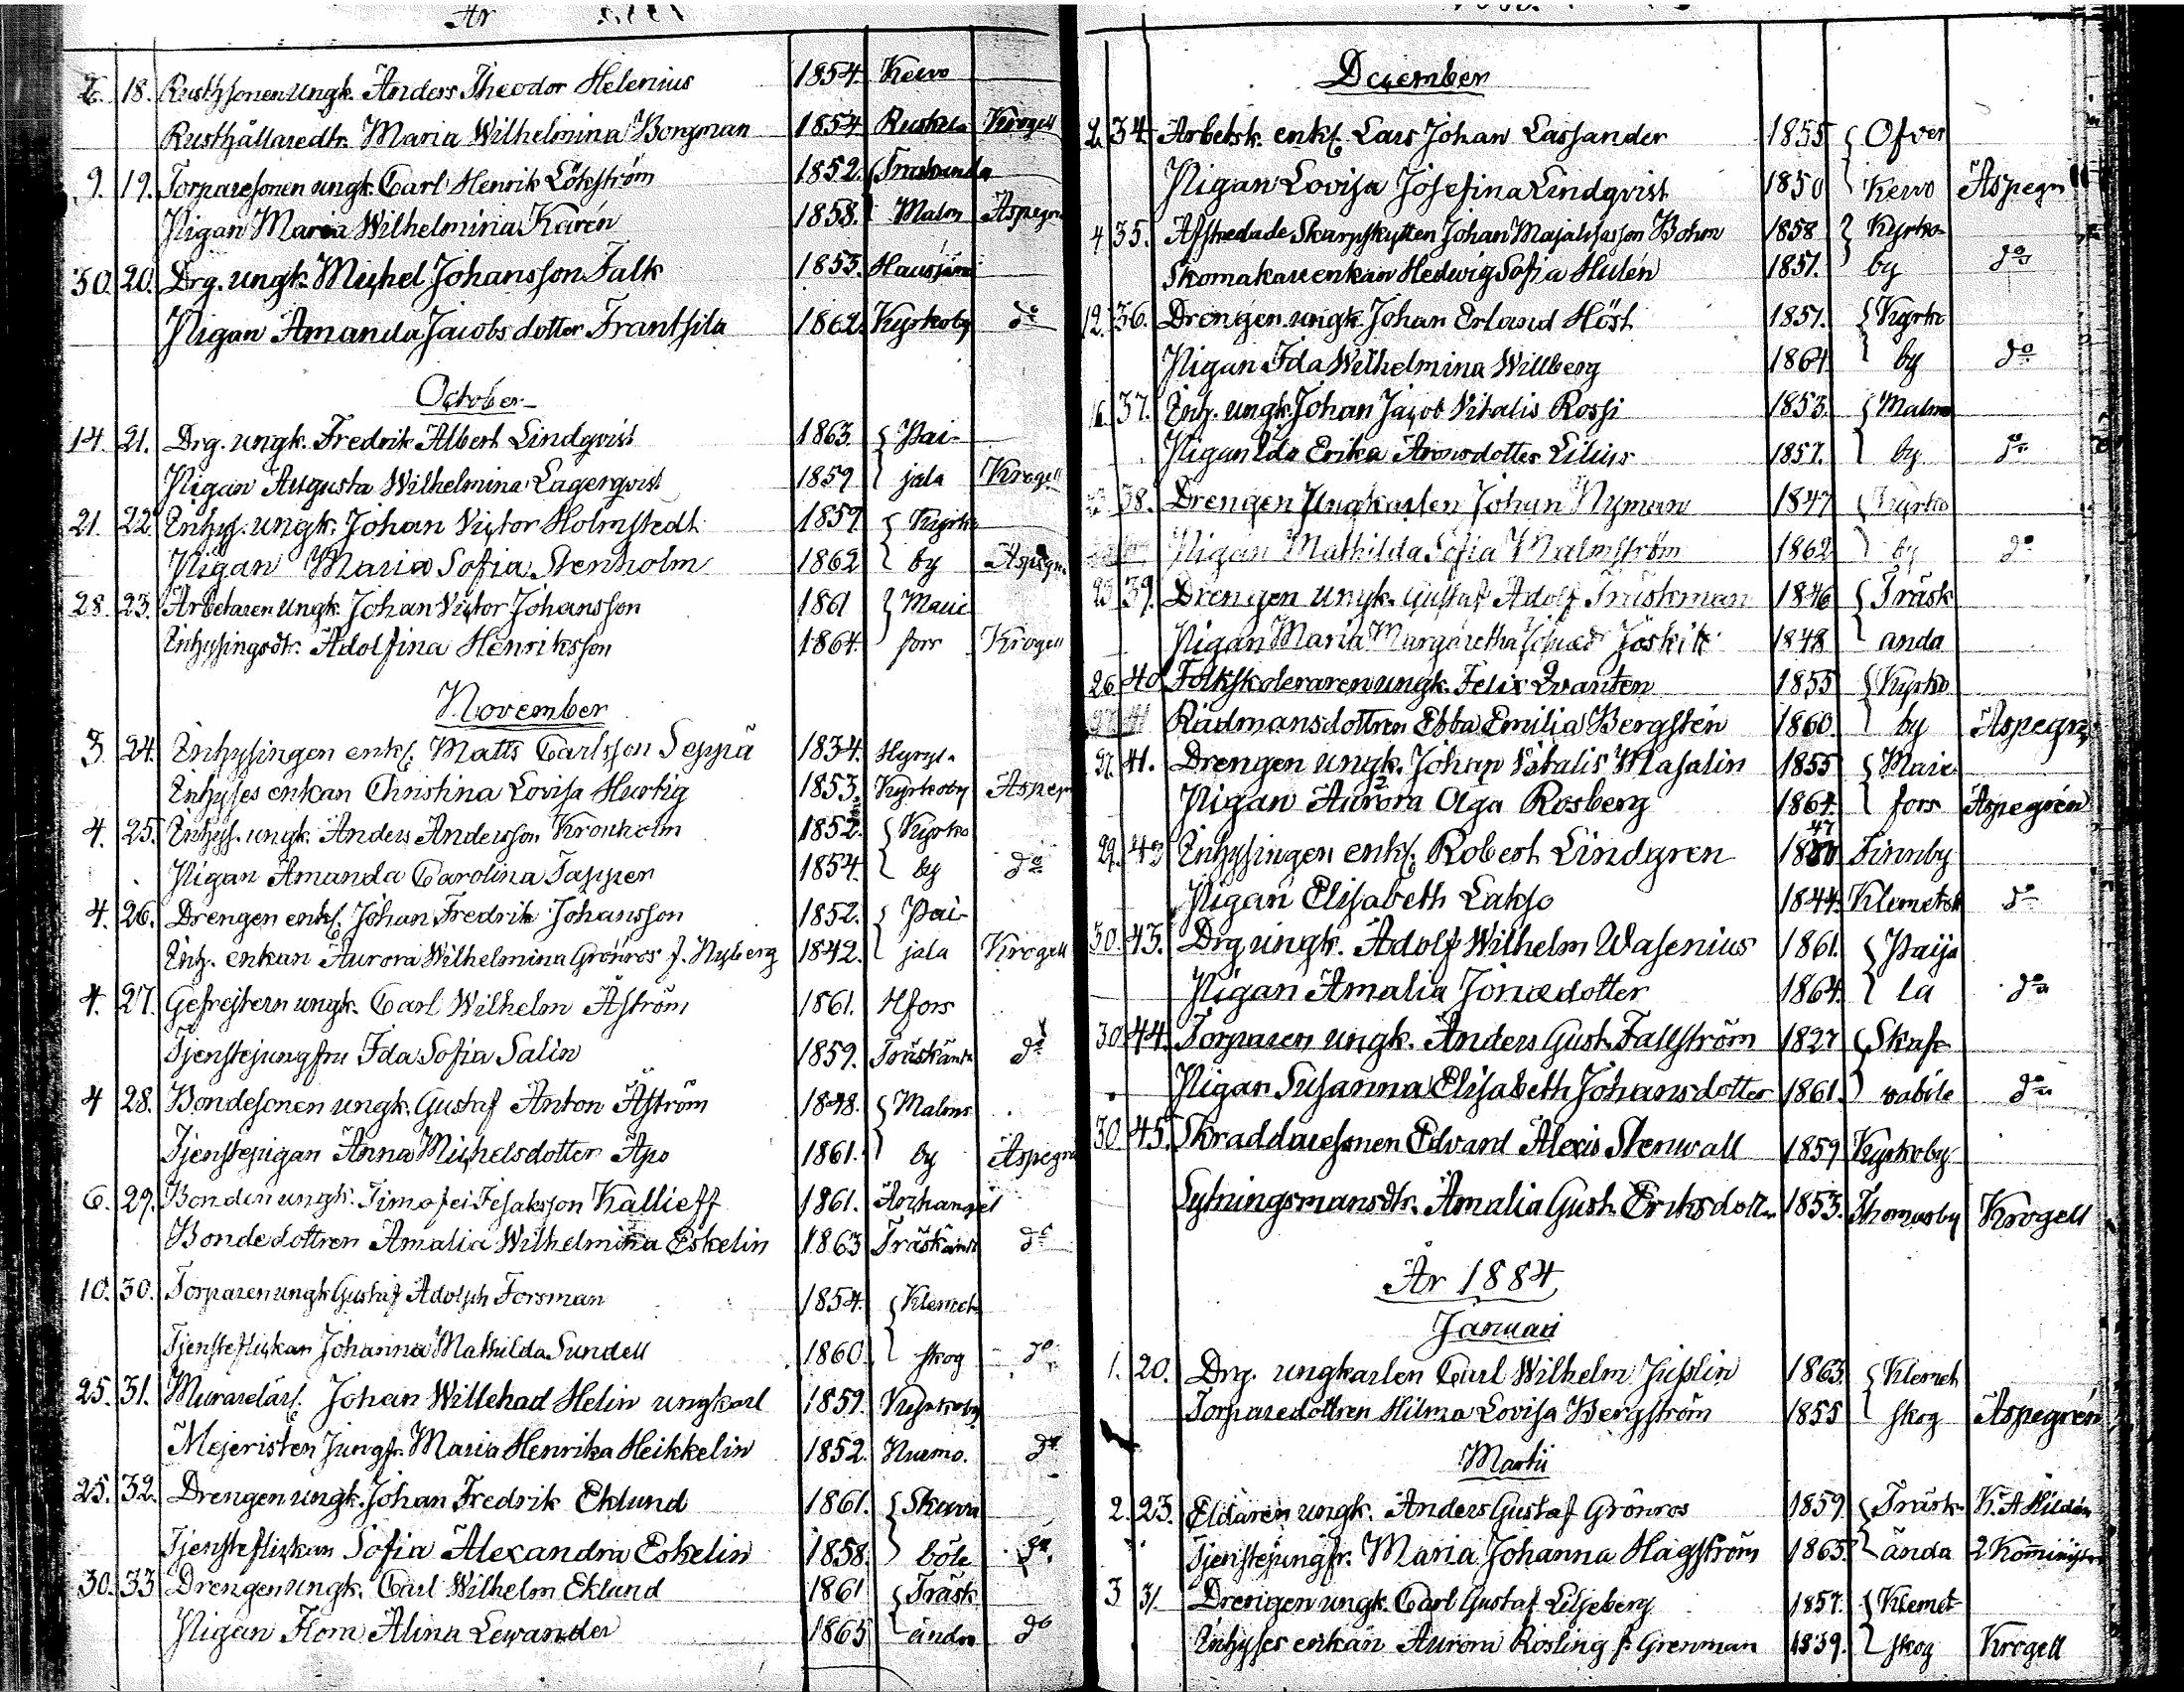 År
6. 18. Rusth.sonen ungk. Anders Theodor Helenius 1854. Kervo
Rusthållaredtr. Maria Wilhelmina Bongman 1854 Ruskela Krogell
9. 19. Torparesonen ungk. Carl Henrik Lökström 1852.
Pigan Maria Wilhelmina Karén 1858. Malm Aspegr.
30. 20. Drg. ungk. Michel Johansson Falk 1853. Hausjärvi
Pigan Amanda Jacobsdotter Frantsila 1862. Kyrkoby do
October
14. 21. Drg. ungk. Fredrik Albert Lindqvist 1863. Pai-
Pigan Augusta Wilhelmina Lagerqvist 1859 jala Krogell
21. 22. Inhys. ungk. Johan Victor Holmstedt 1859 Kyrko
Pigan Maria Sofia Stenholm 1862 by Aspegr.
28. 23. Arbetaren ungk. Johan Victor Johansson 1861 Marie
Inhysingsdtr. Adolfina Henriksson 1864. fors Krogell
November
3. 24. Inhysingen enkl. Matts Carlsson Seppä 1834. Hyryl.
Inhyses enkan Christina Lovisa Hurtig 1853. Kyrkoby Aspegr
4. 25. Inhys. ungk. Anders Andersson Kronholm 1852. Kyrko
Pigan Amanda Carolina Tapper 1854. by do
4. 26. Drengen enkl. Johan Fredrik Johansson 1852. Pai-
Inh. enkan Aurora Wilhelmina Grönros f. Nyberg 1842. jala Krogell
4. 27. Gefrejtern ungk. Carl Wilhelm Åström 1861. Hfors
Tjenstejungfru Ida Sofia Salin 1859. Träskända do
4 28. Bondesonen ungk. Gustaf Anton Åström 1848. Malms
Tjenstepigan Anna Michelsdotter Apo 1861. by Aspegre
6. 29. Bonden ungk. Timofei Fesaksson Kallieff 1861. Archangel
Bondedottren Amalia Wilhelmina Eskelin 1863 Träskända do
10. 30. Torparen ungk Gustaf Adolph Forsman 1854. Klemet
Tjensteflickan Johanna Mathilda Sundell 1860 skog do
25. 31. Murarelärl. Johan Willehad Helin ungkarl 1859. Kyrkoby
Mejeristen Jungfr. Maria Henrika Heikkelin 1852. Nurmo. do
25. 32. Drengen ungk. Johan Fredrik Eklund 1861. Skava
Tjensteflickan Sofia Alexandra Eskelin 1858. böle do
30. 33 Drengen ungk. Carl Wilhelm Eklund 1861 Träsk
Pigan Flora Alina Lewander 1865 ända do
December
2. 34. Arbetsk. enkl. Lars Johan Lassander 1855 Öfver
Pigan Lovisa Josefina Lindqvist 1850 Kervo Aspegr
4. 35. Afskedade Skarpskytten Johan Bohm 1858 Kyrko
Skomakareenkan Hedvig Sofia Hulén 1851. by do
12. 36. Drengen ungk. Johan Erland Höst 1857. Kyrko
Pigan Ida Wilhelmina Willberg 1864 by do
37. Inh. ungk. Johan Jacob Vitalis Rossi 1853. Malm
Pigan Ida Erika Aronsdotter Lilius 1857. by do
38. Drengen Ungkarlen Johan Nyman 1847 Kyrko
Pigan Mathilda Sofia Malmström 1862 by do
25 39. Drengen ungk. Gustaf Adolf Träskman 1846 Träsk
Pigan Maria Margaretha 1848 anda
26 40 Folkskoleraren ungk. Felix Qvanten 1855 Kyrko
Rådmansdottren Ebba Emilia Bergstén 1860. by Aspegré
27. 41. Drengen ungk. Johan Vitalis Wlasalin 1855 Marie
Pigan Aurora Olga Rosberg 1864. fors Aspegrén
29. 43 Inhysingen enkl. Robert Lindgren 47 Finnby
Pigan Elisabeth Lakso 1844. Klemetsk do
30. 43. Drg ungk. Adolf Wilhelm Wasenius 1861. Paija
Pigan Amalia Jonædotter 1864. la do
30. 44. Torparen ungk. Anders Gust. Fallström 1827 Skaf
Pigan Susanna Elisabeth Johansdotter 1861. vabôle do
30. 45. Skräddaresonen Edvard Alexis Stenwall 1859 Kyrkoby
Sytningsmansdtr. Amalia Gust. Eriksdott. 1853. Thomasby Krogell
År 1884
Januari
1. 20. Drg. ungkarlen Carl Wilhelm Jusslin 1863. Klemet
Torparedottren Hilma Lovisa Bergström 1855 skog Aspegrén
Martii
2. 23. Eldaren ungk. Anders Gustaf Grönros 1859 Träsk- K.A Hildén
Tjenstejungfr. Maria Johanna Hagström 1863. ända 2 Kominister
3 31. Drengen ungk. Carl Gustaf Liljeberg 1857. Klemet
Inhyses enkan Aurora Rosling f. Grenman 1839. skog Krogell